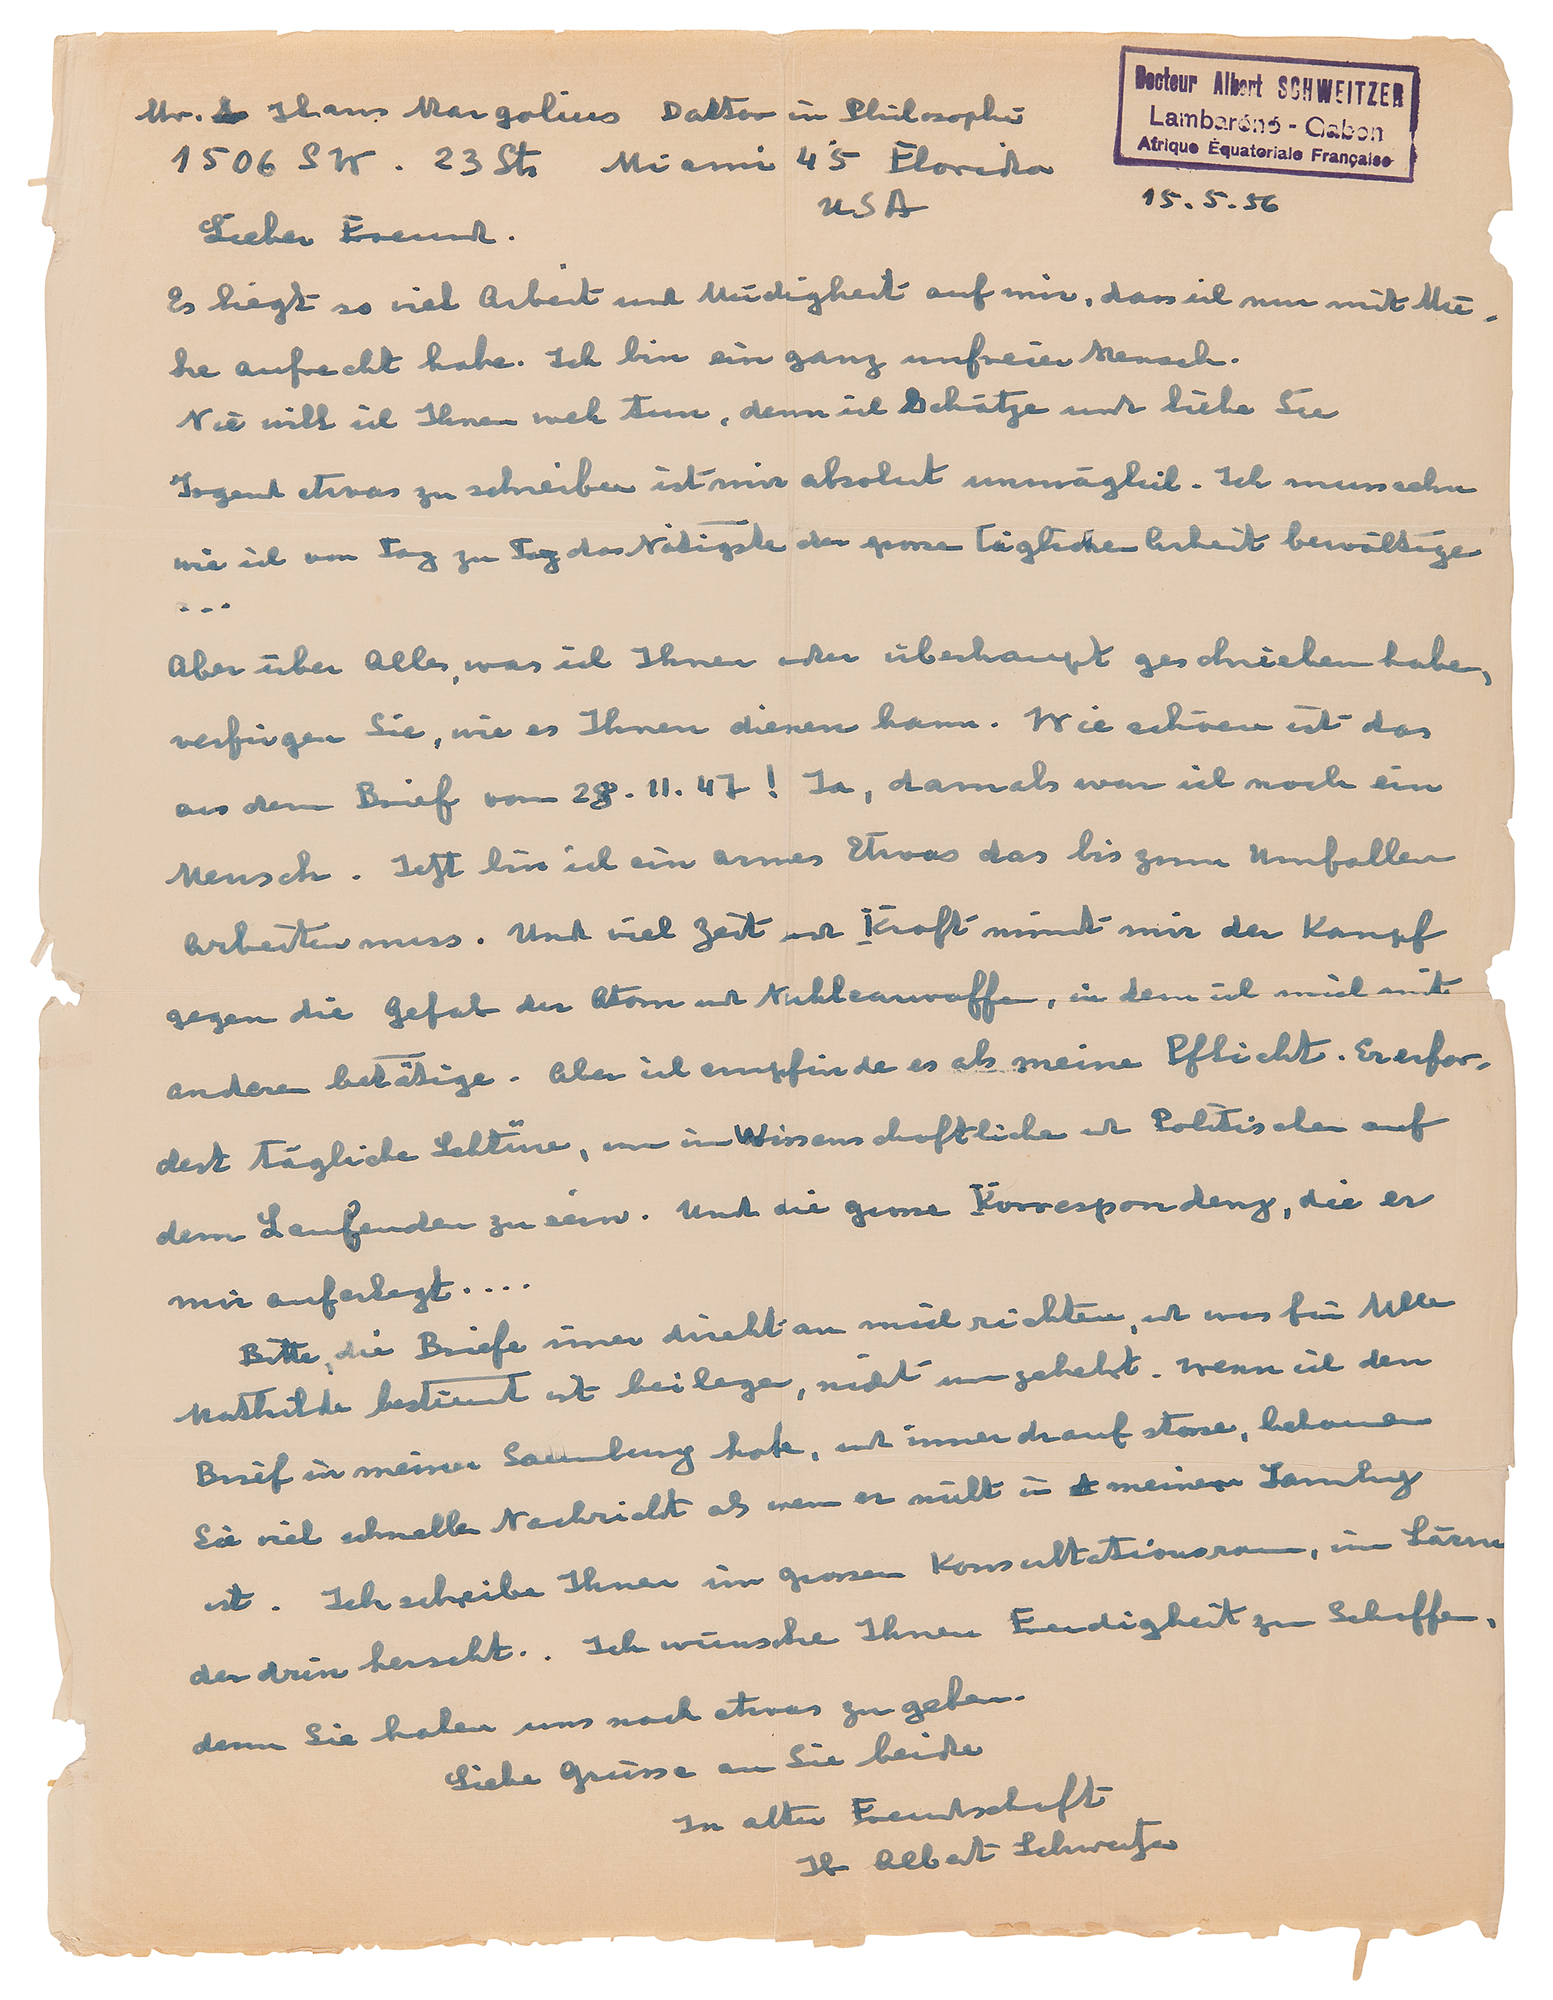 Docteur Albert SCHWEITZER
Lambaréné - Gabon
Afrique Équatoriale Française
Mr. Hans Margolius Doktor in Philosophie
1506 SW. 23 Str Miami 45 Florida
USA
15.5.56
Lieber Freund.
Es liegt so viel Arbeit und Müdigkeit auf mir, dass ich nur mit Mü-
he aufrecht habe. Ich bin ein ganz unfreier Mensch.
Nie will ich Ihnen weh tun, denn ich schätze und liebe Sie
Irgend etwas zu schreiben ist mir absolut unmöglich. Ich muss sehn
wie ich von Tag zu Tag das Nötigste der grossen täglichen Arbeit bewältige
...
Aber über Alles, was ich Ihnen oder überhaupt geschrieben habe,
verfügen Sie, wie es Ihnen dienen kann. Wie schoen ist das
aus dem Brief vom 28.11.47! Ja, damals war ich noch ein
Mensch. Jetzt bin ich ein armes Etwas das bis zum Umfallen
arbeiten muss. Und viel Zeit und Kraft nimt mir der Kampf
gegen die Gefahr der Atom und Nuklearwaffen, in dem ich mich mit
anderen betätige. Aber ich empfinde es als meine Pflicht. Er erfor-
dert tägliche Lektüre, um im Wissenschaftlichen und Politischen auf
dem Laufenden zu sein. Und die grosse Korrespondenz, die er
mir auferlegt....
Bitte, die Briefe imer direkt an mich richten, und was für Mlle
Mathilde bestimt ist beilegen, nicht umgekehrt. Wenn ich den
Brief in meiner Sammlung habe, und imer drauf stosse, bekomen
Sie viel schneller Nachricht als wenn er nicht in meiner Samlung
ist. Ich schreibe Ihnen im grossen Konsultationsraum, im Lärm
der drin herscht.. Ich wünsche Ihnen Freudigkeit zum Schaffen,
denn Sie haben uns noch etwas zu geben.
Liebe Grüsse an Sie beide
In alter Freundschaft
Ihr Albert Schweitzer